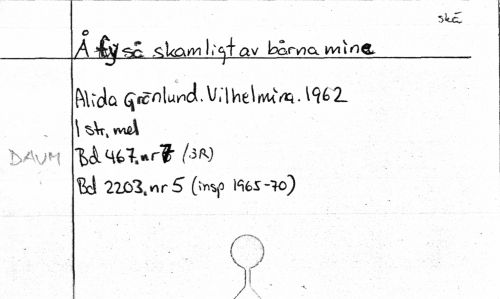 skä
Å fy så skamligt av bårna mine
Alida Grönlund. Vilhelmina. 1962
1 str, mel
DAUM Bd 467. nr 7 (3R)
Bd 2203. nr 5 (insp 1965-70)